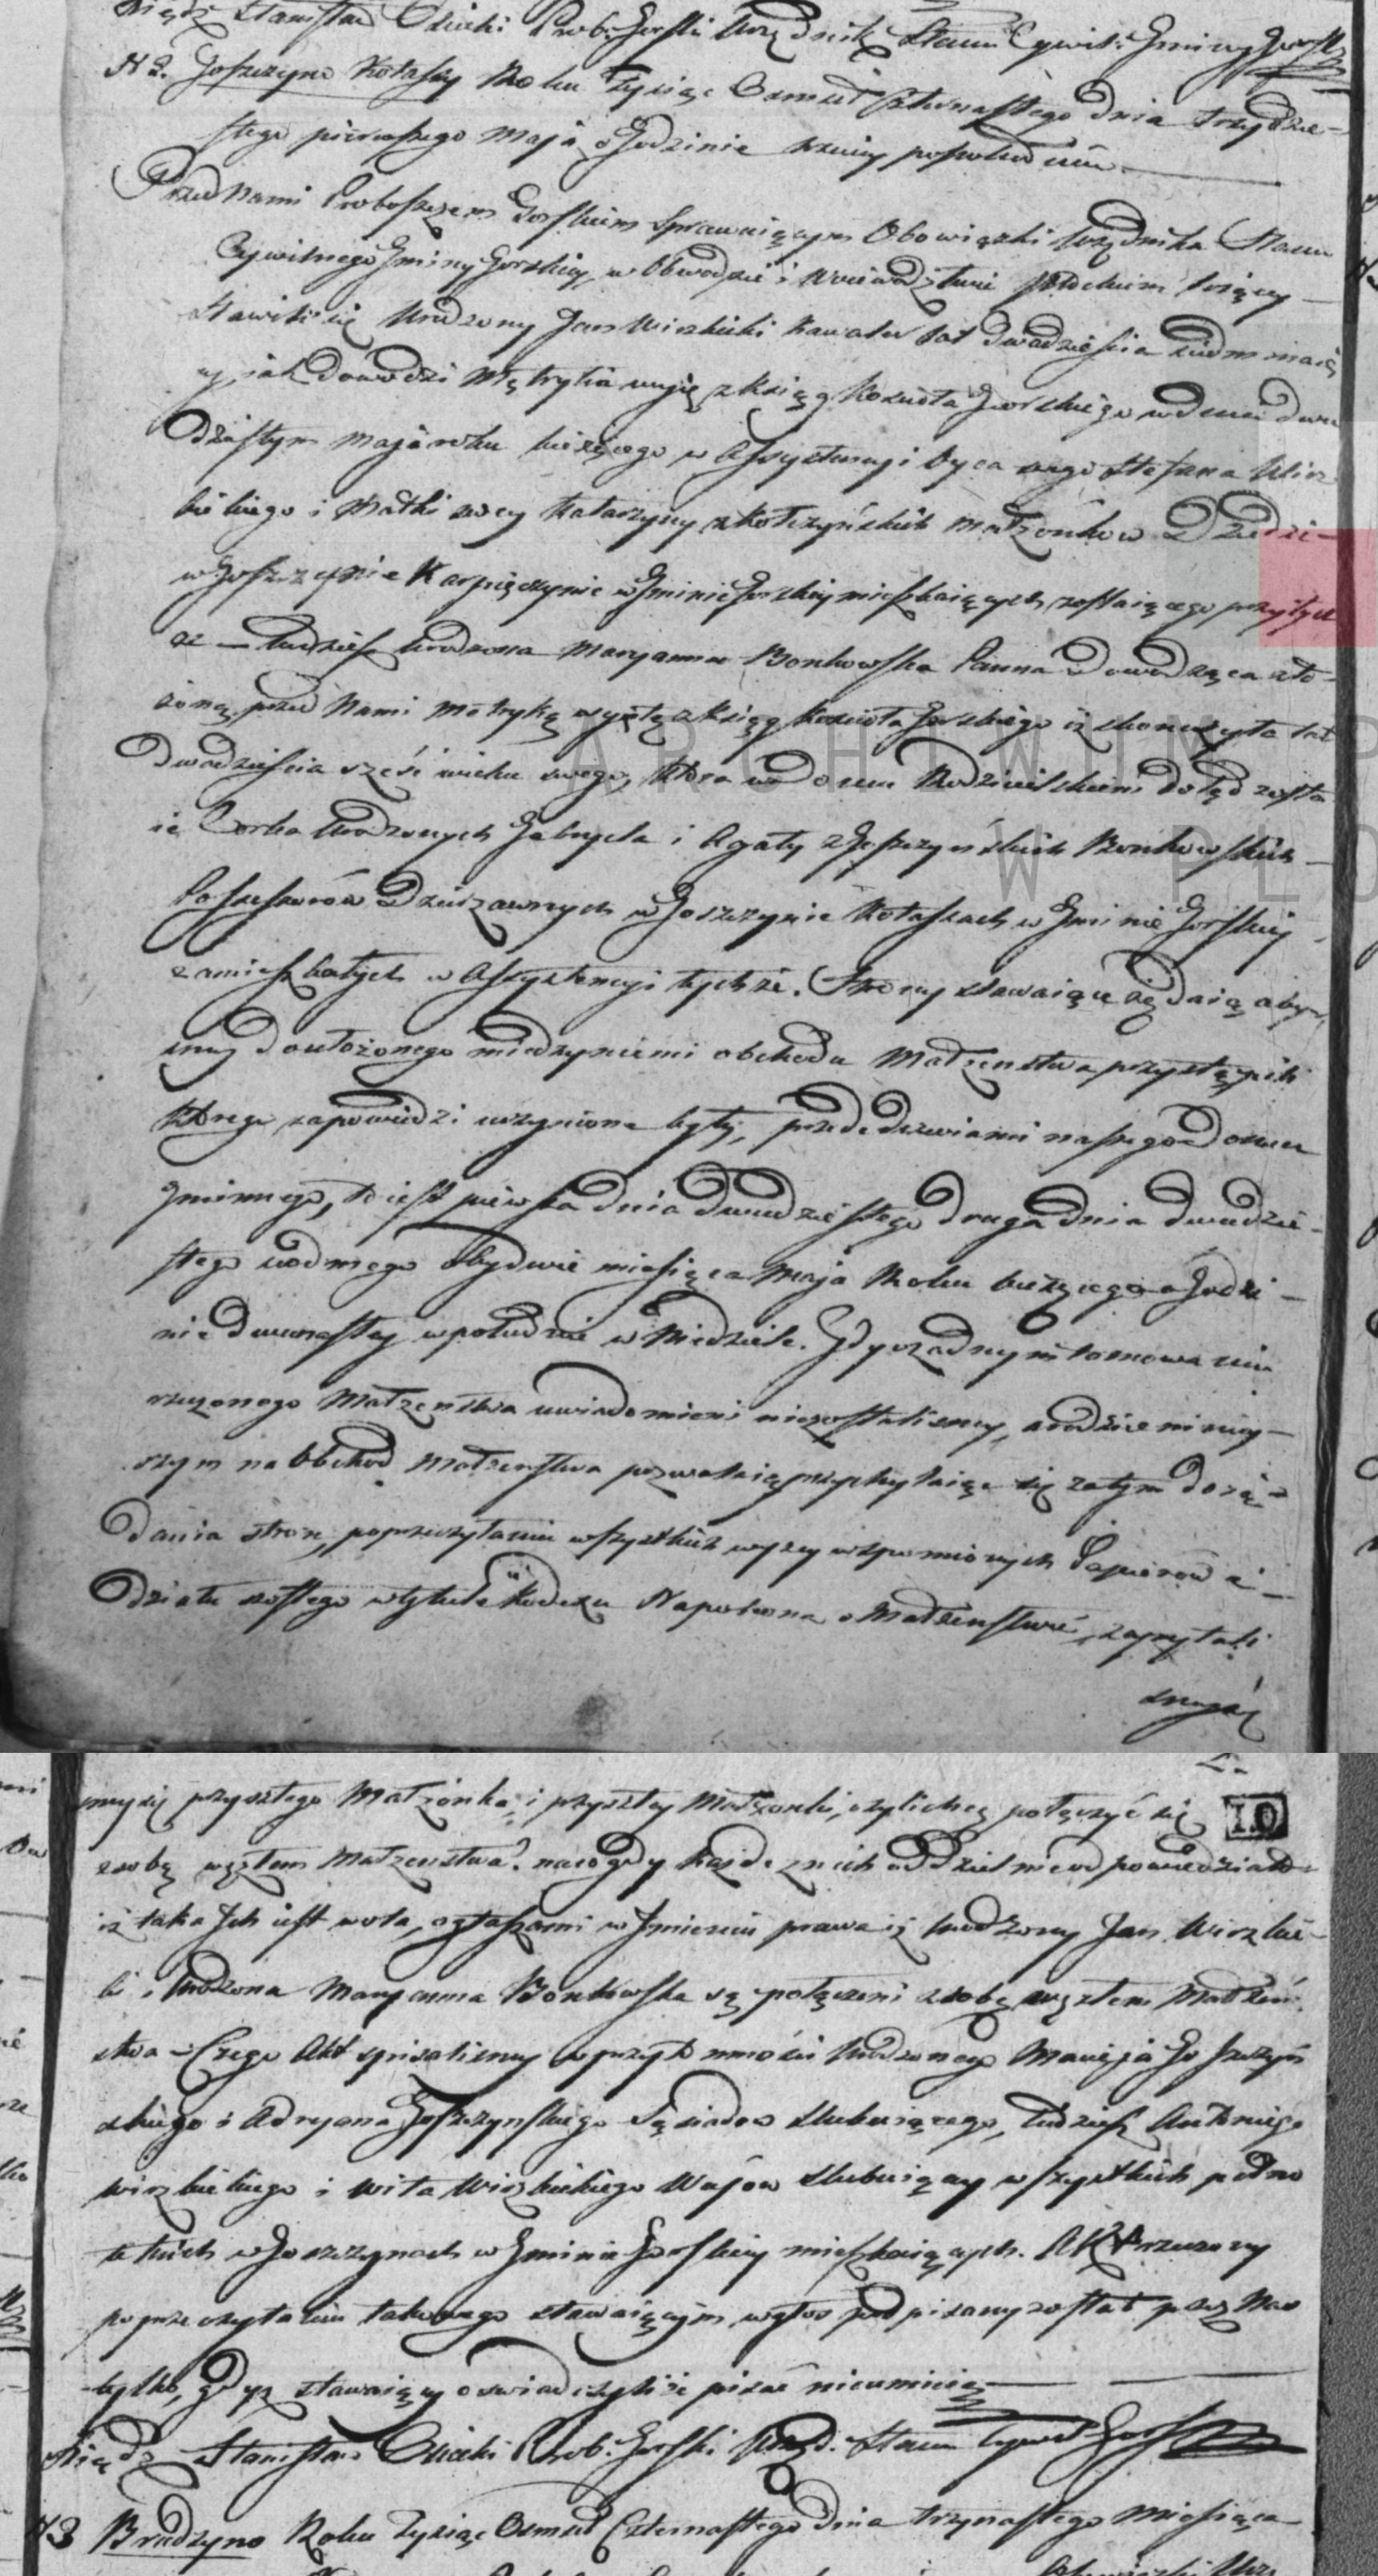 Xiądz Stanisław Osiecki Prob. Gorski Urzędnik Stanu Cywil: Gminy Gorsk:
N 2. Goszczyno Kołaszy Roku Tysiąc Osmset Czternastego dnia trzydzie-
stego pierwszego Maja o Godzinie trzeciey popołudniu
Przed Nami Proboszczem Gorskim Sprawuiącym Obowiązki Urzędnika Stanu
Cywilnego Gminy Gorskiey, w Obwodzie i Wojewodztwie Płockim leżącey
stawił się Urodzony Jan Wirzbicki Kawaler lat dwadzieścia siedm maią
cy, jak dowodzi Metryka wyjęta z Xsiąg Kosciola Gorskiego w dniu dwu
dziestym maja roku bieżącego w Assystencyi Oyca swego Stefana Wirz
bickiego i Matki swey Katarzyny z małżonkow Dziedzi-
w Goszczynie Karpięczynie w Gminie Gorskiey mieszkaiących zostaiącego przytych
że – tudzież Urodzona Maryanna Bonkowska Panna dowodząca zło-
żoną przed Nami metryką wyjętą z ksiąg Kosciola Gorskiego iż skonczyła lat
Dwadzieścia sześć wieku swego, ktora w domu Rodzicielskim dotąd zosta
ie Corka Urodzonych Gabryela i Agaty z Goszczyńskich Bonkowskich
Possessorów Dzierzawnych w Goszczynie Kołaszach w Gminie Gorskiey
zamieszkałych w Assystencyi tychże. Strony stawaiące żądaią aby
smy do ułożonego między niemi obchodu Małżenstwa przystąpili
ktorego zapowiedzi uczynione były, przed drzwiami naszego domu
gminnego, to iest pierwsza dnia dwudziestego druga dnia dwudzie-
stego siodmego obydwie miesiąca Maja Roku bieżącego o Godzi-
nie dwunastey wpołudnie w Niedziele. Gdy o żadnym tamowaniu
rzeczonego Małżenstwa uwiadomieni niezostalismy, a rodzice niniey-
szym na Obchod Małżenstwa pozwalaią, przychylaiąc się zatym do żą-
dania stron, poprzeczytaniu wszystkich wyżey wspomnionych Papierow i
działu szostego w tytule Kodexu Napoleona o Małżenstwie, zapytali
smy się przyszłego Małżonka i przyszłey Małżonki, czyli chcą połączyć się
10
z sobą węzłem Małżenstwa. na co gdy każde z nich oddzielnie odpowiedziało
iż taka Ich iest wola, ogłaszami w Imieniu prawa iż Urodzony Jan Wirzbic-
ki i Urodzona Maryanna Bonkowska są połączeni z sobą węzłem Małżeń
stwa – Czego Akt spisalismy w przytomności Urodzonego Macieja Goszczyń
skiego i Adryana Goszczynskiego Sąsiadow slubuiącego, tudzież Antoniego
Wirzbickiego i Wita Wirzbickiego Wujow slubuiącey wszystkich pełno
letnich w Goszczynach w Gminie Gorskiey mieszkaiących. Akt rzeczony
poprzeczytaniu takowego stawaiącym wgłos podpisany został przez Nas
tylko, gdyż stawaiący oswiadczyli że pisać nieumieią
Xiądz Stanisław Osiecki Prob. Gorski Urzęd. Stanu Cywil Gorsk
N 3 Brudzyno Roku Tysiąc Osmset Czternastego dnia trzynastego Miesiąca